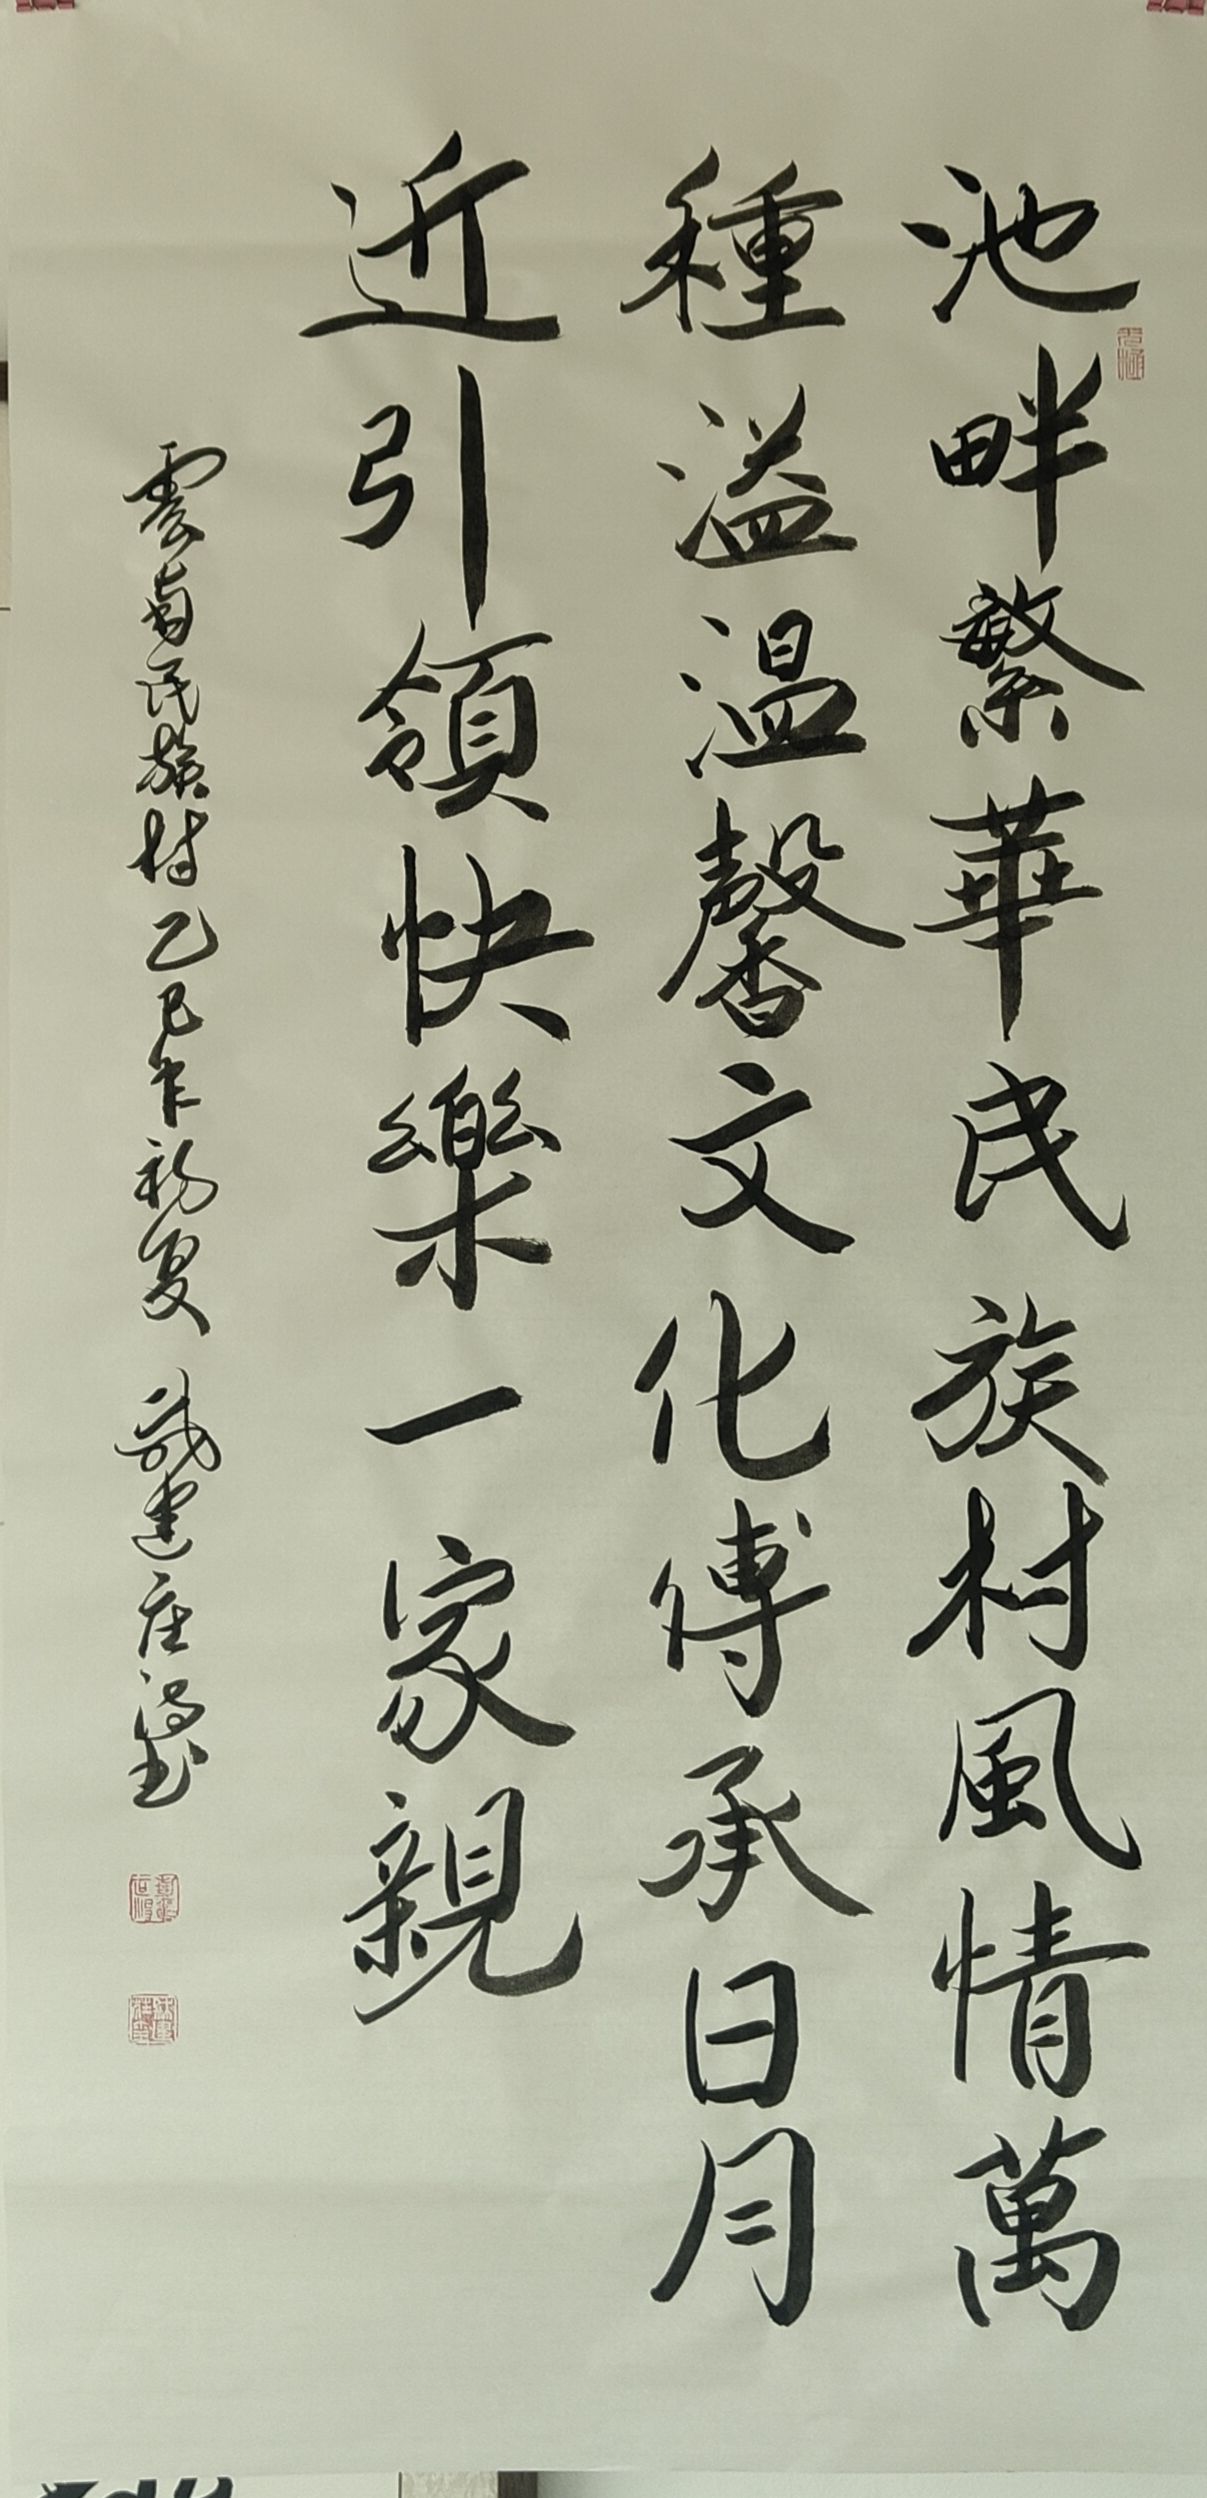 池畔繁華民族村風情萬
種溢溫馨文化傳承日月
近引領快樂一家親
雲南民族村乙巳年初夏